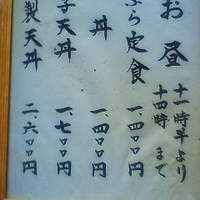 お昼
十一時半より
十四時まで
ぷら定食
一、四〇〇円
丼
一、四〇〇円
子天丼
一、七〇〇円
製天丼
二、六〇〇円